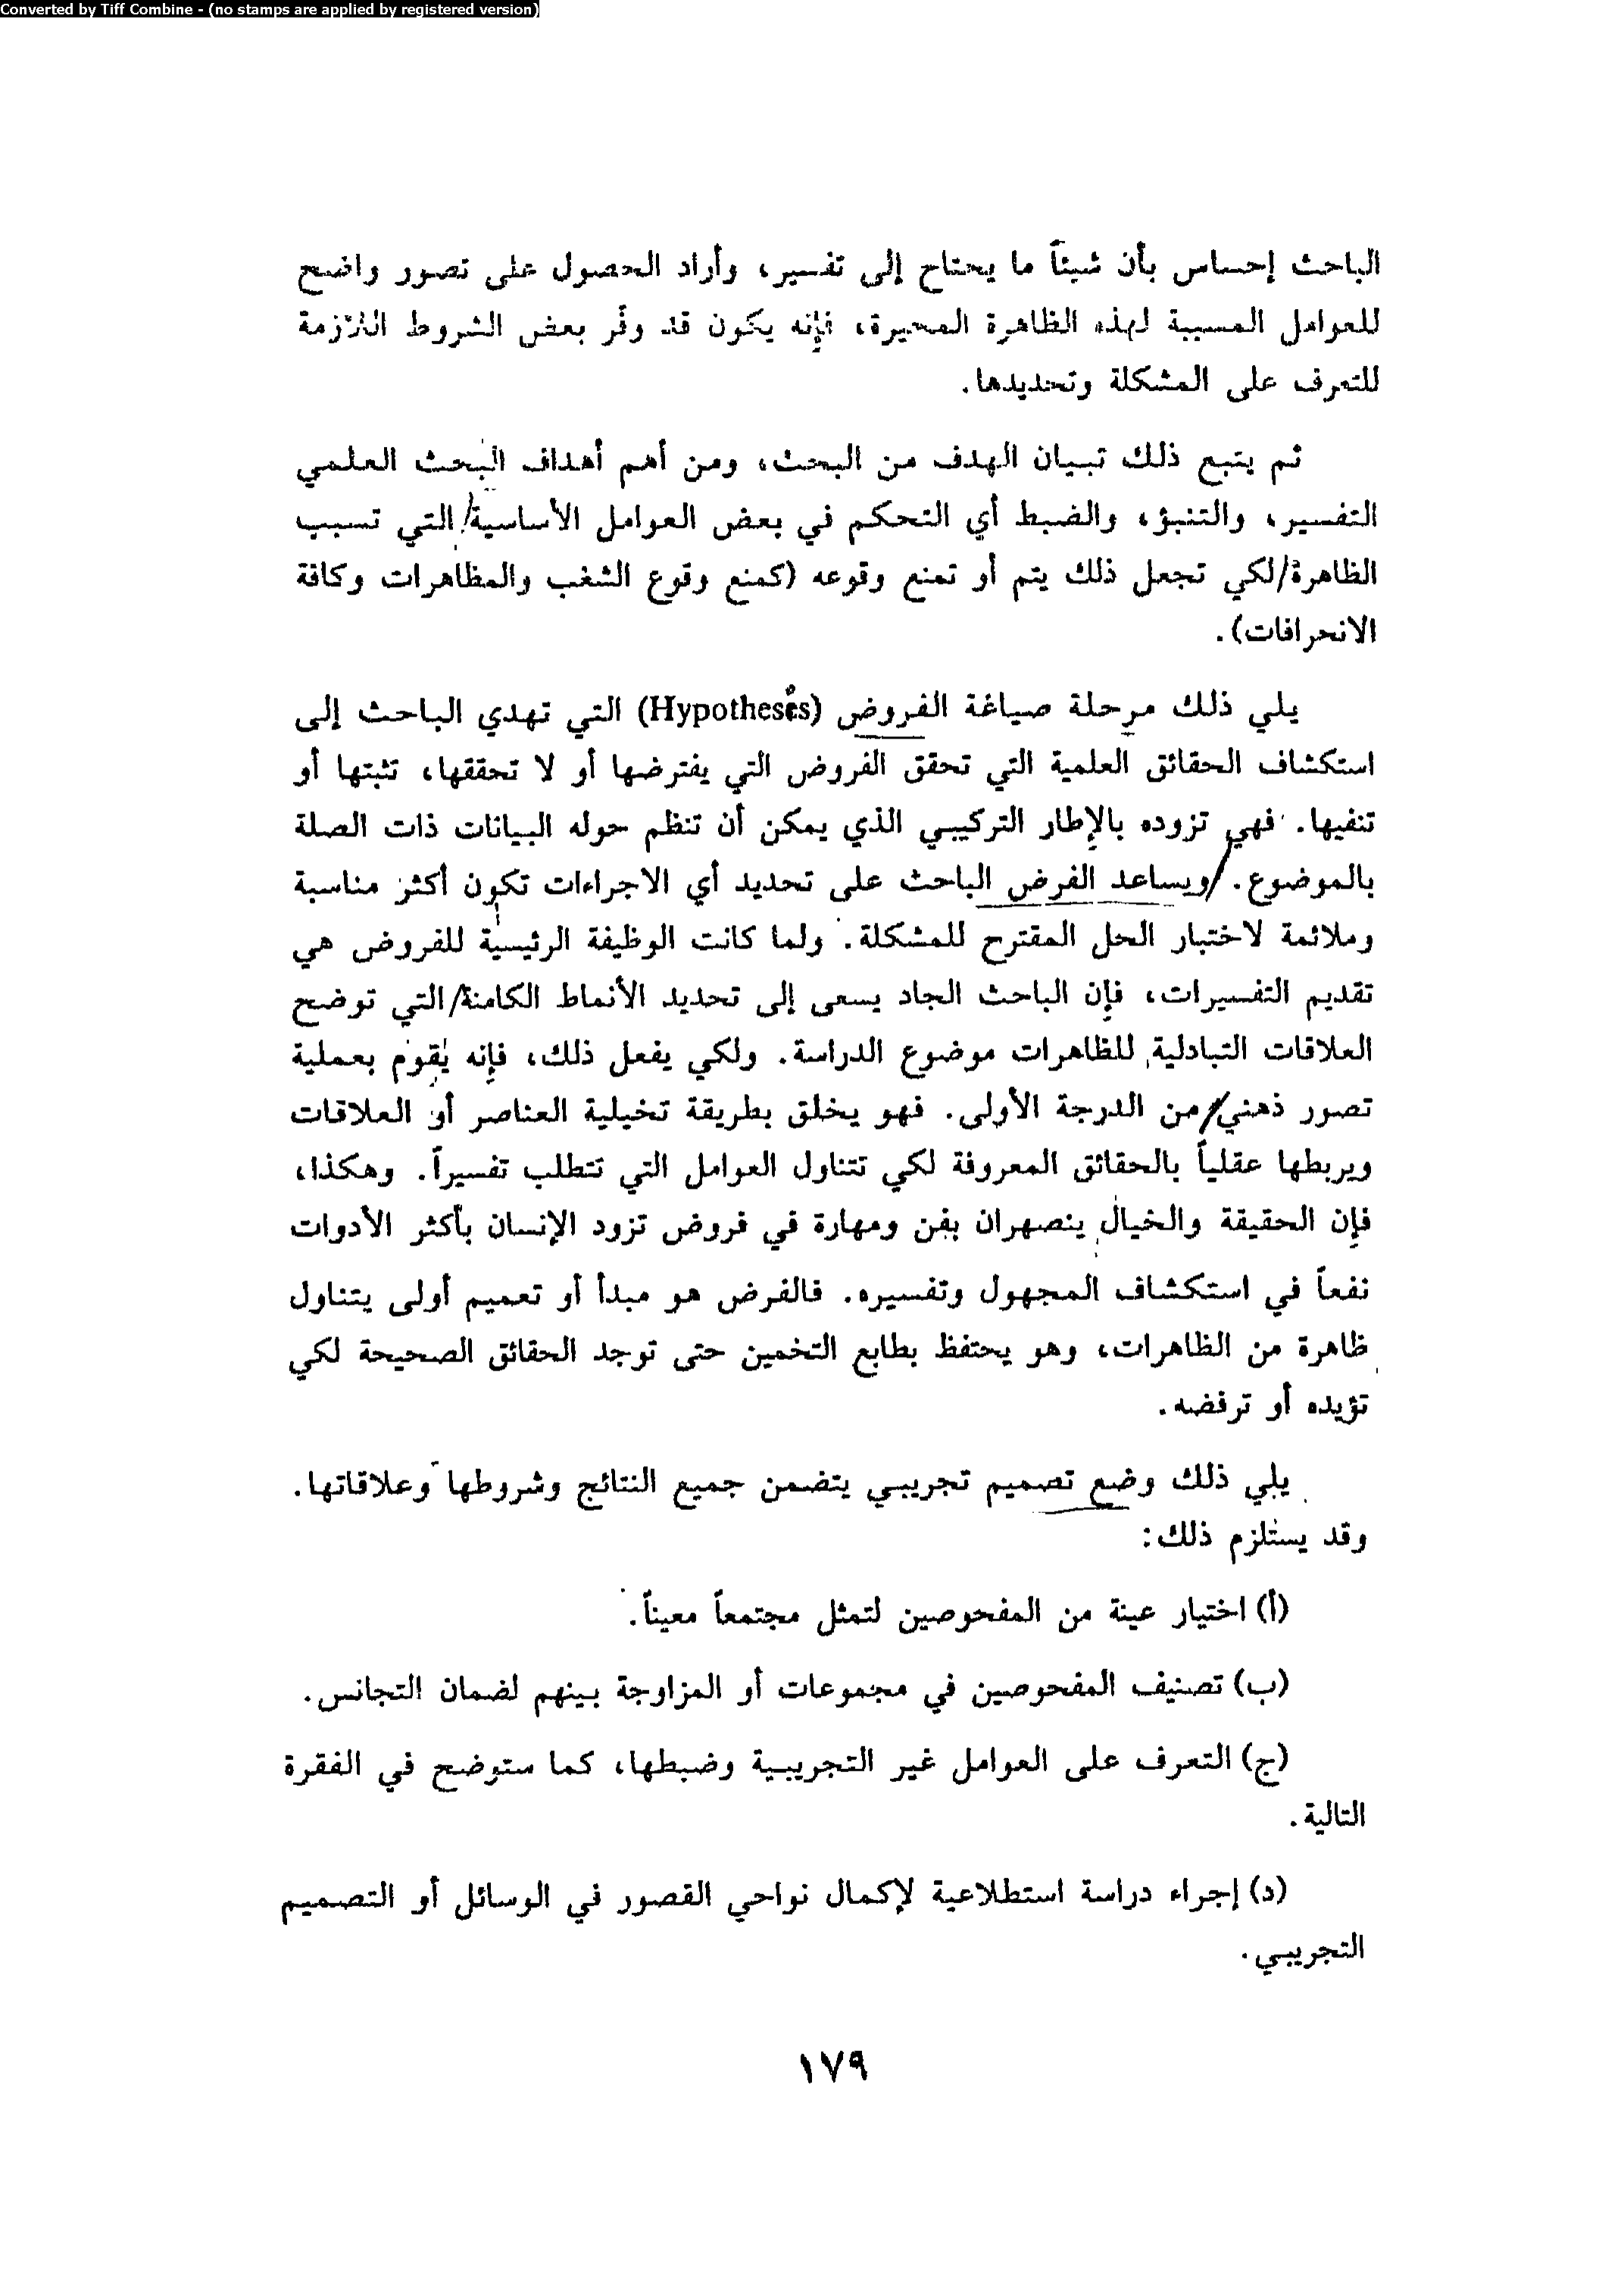 Converted by Tiff Combine - (no stamps are applied by registered version)
الباحث إحساس بأن شيئاً ما يحتاج إلى تفسير، وأراد الحصول على تصور واضح
للعوامل المسببة لهذه الظاهرة المحيرة، فإنه يكون قد وفّر بعض الشروط اللازمة
للتعرف على المشكلة وتحديدها.
ثم يتبع ذلك تبيان الهدف من البحث، ومن أهم أهداف البحث العلمي
التفسير، والتنبؤ، والضبط أي التحكم في بعض العوامل الأساسية/التي تسبب
الظاهرة/لكي تجعل ذلك يتم أو تمنع وقوعه (كمنع وقوع الشغب والمظاهرات وكافة
الانحرافات).
يلي ذلك مرحلة صياغة الفروض (Hypotheses) التي تهدي الباحث إلى
استكشاف الحقائق العلمية التي تحقق الفروض التي يفترضها أو لا تحققها، تثبتها أو
تنفيها. فهي تزوده بالإطار التركيبي الذي يمكن أن تنظم حوله البيانات ذات الصلة
بالموضوع./ويساعد الفرض الباحث على تحديد أي الاجراءات تكون أكثر مناسبة
وملائمة لاختبار الحل المقترح للمشكلة. ولما كانت الوظيفة الرئيسية للفروض هي
تقديم التفسيرات، فإن الباحث الجاد يسعى إلى تحديد الأنماط الكامنة/التي توضح
العلاقات التبادلية للظاهرات موضوع الدراسة. ولكي يفعل ذلك، فإنه يقوم بعملية
تصور ذهني/من الدرجة الأولى. فهو يخلق بطريقة تخيلية العناصر أو العلاقات
ويربطها عقلياً بالحقائق المعروفة لكي تتناول العوامل التي تتطلب تفسيراً. وهكذا،
فإن الحقيقة والخيال ينصهران بفن ومهارة في فروض تزود الإنسان بأكثر الأدوات
نفعاً في استكشاف المجهول وتفسيره. فالفرض هو مبدأ أو تعميم أولى يتناول
ظاهرة من الظاهرات، وهو يحتفظ بطابع التخمين حتى توجد الحقائق الصحيحة لكي
تؤيده أو ترفضه.
يلي ذلك وضع تصميم تجريبي يتضمن جميع النتائج وشروطها وعلاقاتها.
وقد يستلزم ذلك:
(أ) اختيار عينة من المفحوصين لتمثل مجتمعاً معيناً.
(ب) تصنيف المفحوصين في مجموعات أو المزاوجة بينهم لضمان التجانس.
(ج) التعرف على العوامل غير التجريبية وضبطها، كما ستوضح في الفقرة
التالية.
(د) إجراء دراسة استطلاعية لإكمال نواحي القصور في الوسائل أو التصميم
التجريبي.
١٧٩